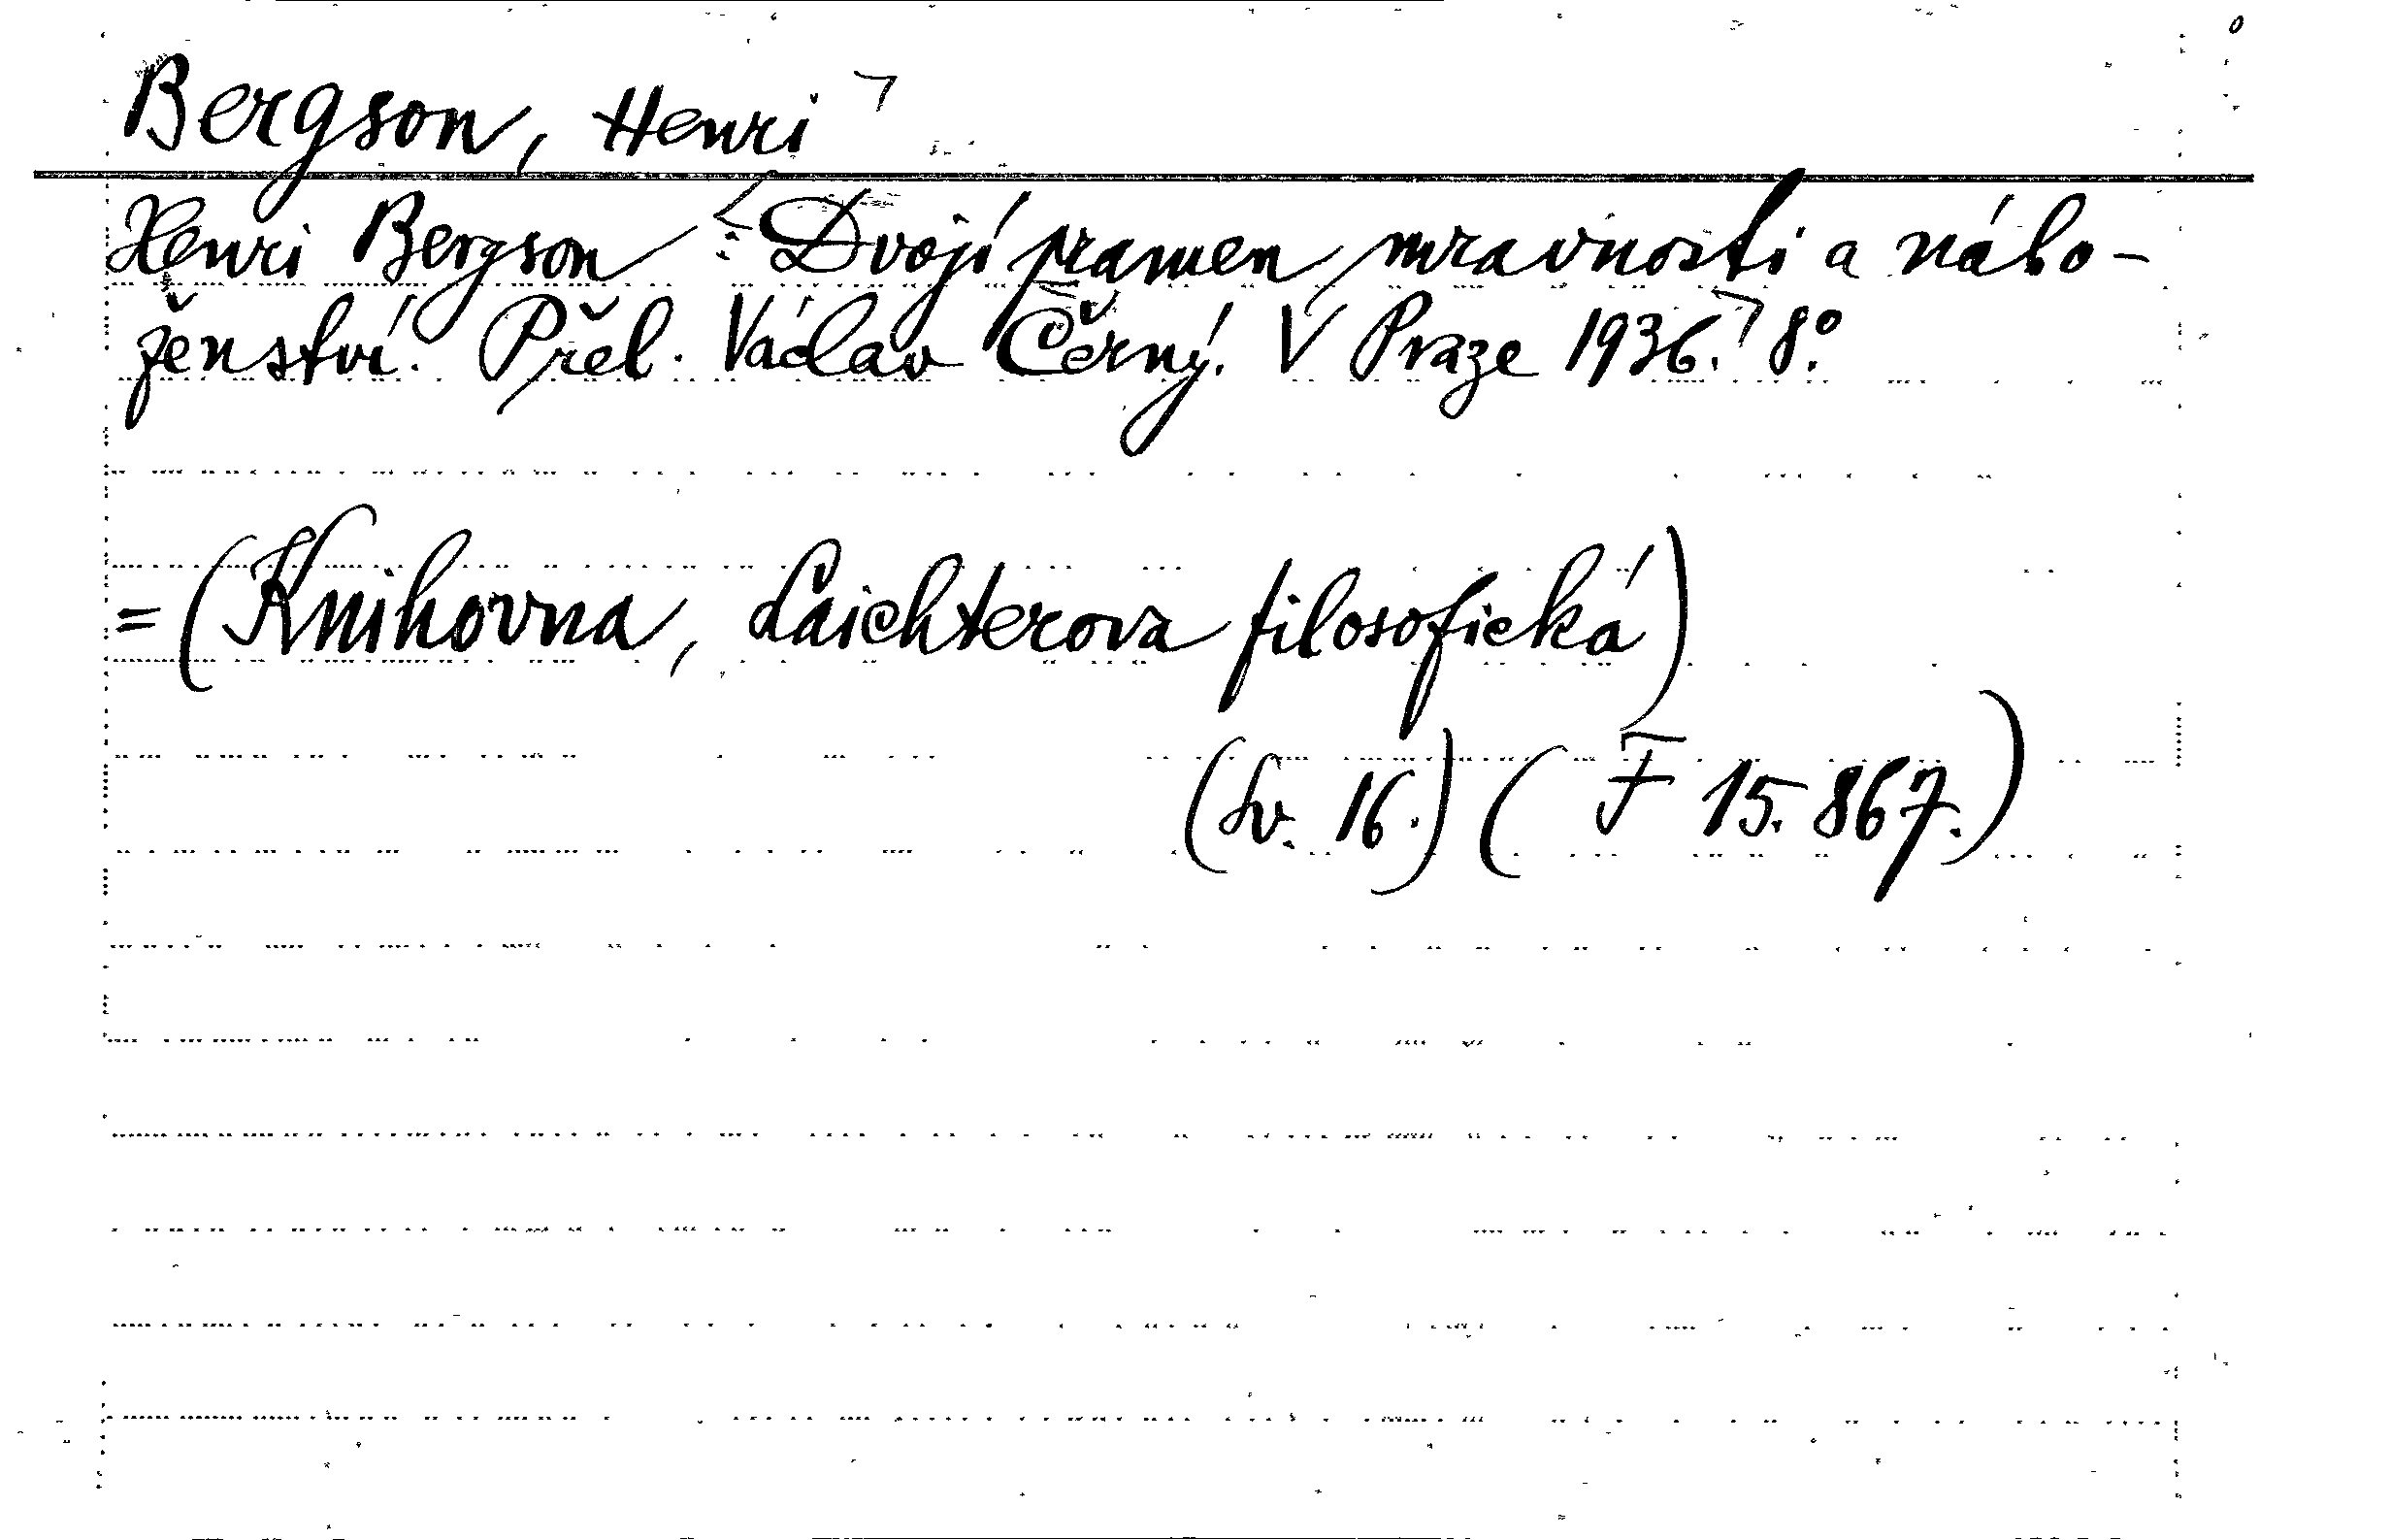 Bergson, Henri
Henri Bergson : Dvojí pramen mravnosti a nábo-
ženství. Přel. Václav Černý. V Praze 1936. 8°.
= (Knihovna, Laichterova filosofická)
(Sv. 16.) ( F 15.867.)